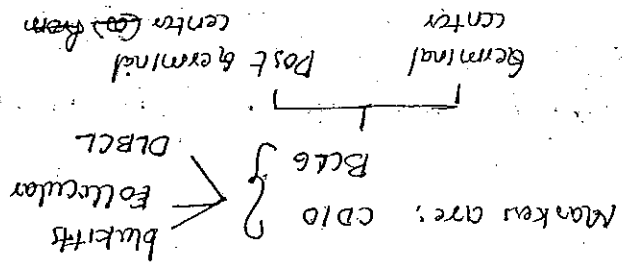 Markers are: CD10
BCL6
blukitts
Follicular
DLBCL
Germinal
center
Post Germinal
center